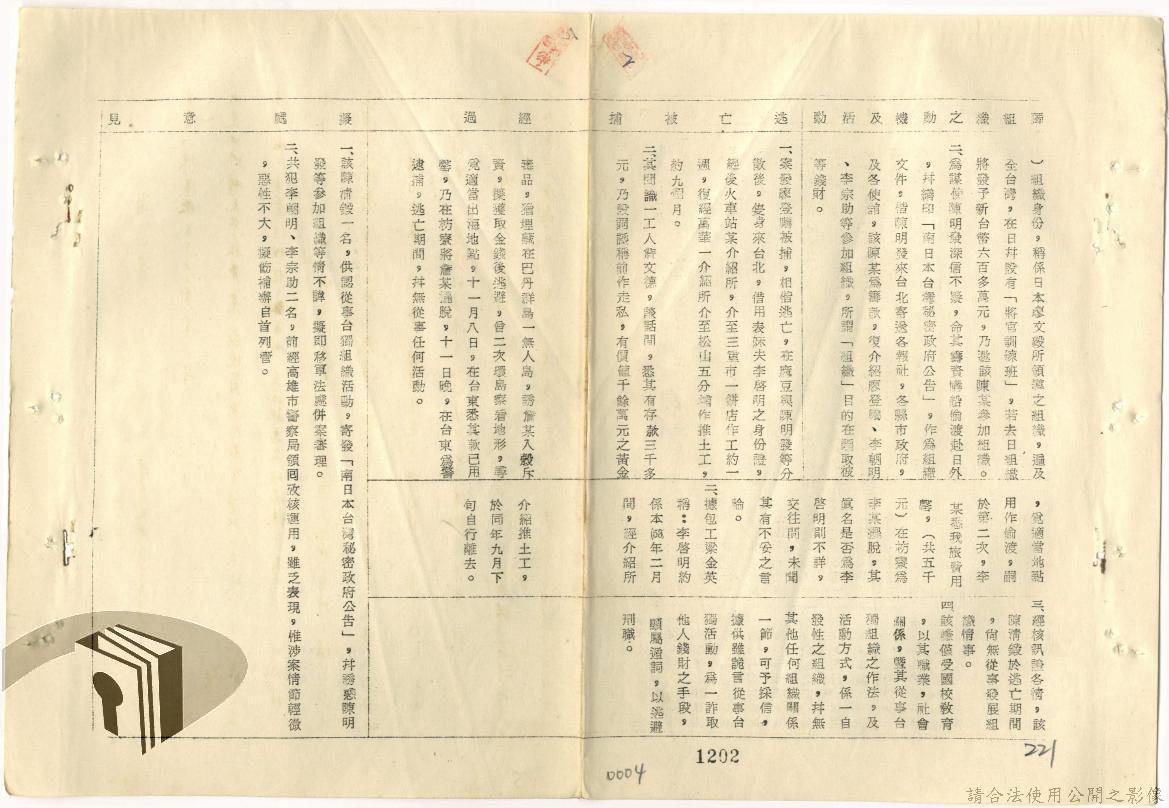 聯組織之動機及活動
逃亡被捕經過
擬處意見
）組織身份，稱係日本廖文毅所領導之組織，遍及
全台灣，在日幷設有「將官訓練班」，若去日組織
將發予新台幣六百多萬元，乃邀該陳某參加組織。
二、為謀使陳明發深信不疑，命其籌資購船偷渡赴日外
，幷繕印「南日本台灣秘密政府公告」，作為組織
文件，偕陳明發來台北寄送各報社，各縣市政府，
及各使館，該陳某為籌款，復介紹廖登驥、李朝明
、李宗助等參加組織，所謂「組織」目的在騙取彼
等錢財。
一、案發廖登驥被捕，相偕逃亡，在麻豆與陳明發等分
散後，隻身來台北，借用表妹夫李啓明之身份證，
經後火車站某介紹所，介至三重市一餅店作工約一
週，復經萬華一介紹所介至松山五分埔作推土工，
約九個月。
二、其間識一工人詹文德，談話間，悉其有存款三千多
元，乃設詞誘稱前作走私，有價值千餘萬元之黃金
毒品，猶埋藏在巴丹群島一無人島，誘詹某入彀斥
資，擬獲取金錢後逃避，曾二次環島察看地形，尋
覓適當出海地點，十一月八日，在台東悉其款已用
罄，乃在枋寮將詹某擺脫，十一日晚，在台東為警
逮捕，逃亡期間，幷無從事任何活動。
，覓適當地點
用作偷渡，嗣
於第二次，李
某悉我旅費用
罄，（共五千
元）在枋寮為
李某擺脫，其
眞名是否為李
啓明則不詳，
交往間，未聞
其有不妥之言
論。
二、據包工梁金英
稱：李啓明約
係本58年二月
間，經介紹所
介紹推土工，
於同年九月下
旬自行離去。
三、經核訊證各情，該
陳清鍛於逃亡期間
，尚無從事發展組
織情事。
四、該嫌僅受國校教育
，以其職業，社會
關係，暨其從事台
獨組織之作法，及
活動方式，係一自
發性之組織，幷無
其他任何組織關係
一節，可予採信，
據供雖詭言從事台
獨活動，為一詐取
他人錢財之手段，
顯屬遁詞，以逃避
刑職。
一、該陳清鍛一名，供認從事台獨組織活動，寄發「南日本台灣秘密政府公告」，幷誘惑陳明
發等參加組織等情不諱，擬即移軍法處併案審理。
二、共犯李朝明、李宗助二名，前經高雄市警察局領囘攷核運用，雖乏表現，惟涉案情節輕微
，惡性不大，擬飭補辦自首列管。
1202
0004
221
請合法使用公開之影像